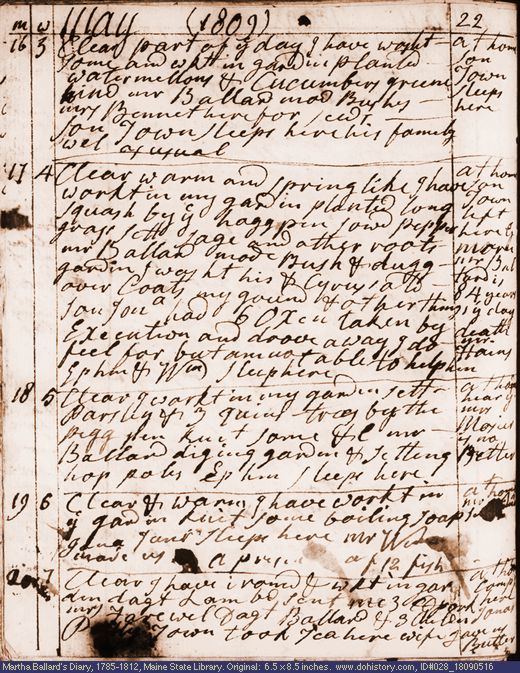 m w May (1809) 22
16 3 Clear part of ye day I have washt
some and wkt in gardin planted
watermellons & Cucumbers greene
kind mr Ballard mod Bushes
mrs Bennet here for seeds
son Town sleeps here his family
wel as usual
at home
son
Town
sleeps
here
17 4 Clear warm and spring like I have
workt in my gardin planted long
squash by ye hogg pin sowd pepper
grass sett sage and other roots
mr Ballard mode Bush & dugg
gardin I washt his & Cyrus
over Coats, my gound & other things
son Jona had 6 Oxen taken by
Execution and drove away I do
feel for, but am not able to help him
Ephm & Wm sleep here
at home
son
Town
left
here
morn
mr Bal
lard is
84 years
ys day
death
mr
Hains
18 5 Clear I workt in my gardin sett
Parsley & 3 quins trees by the
pigg pen knit some &c mr
Ballard diging gardin & setting
hop poles Ephm sleeps here
at home
hear
mrs
Moses
is no
Better
19 6 Clear & warm I have workt in
ye gardin knit some boiling soap
Jona Junr sleeps here mr Wm
made us a presn of 12 fish
at home
20 7 Clear I have irond & wkt in gar
din dagt Lambd sent me 3 lb pork
mrs Farewel Dagt Ballard & 3 Childn
Town took Tea here wife
at home
here
Jonas
Butler
Martha Ballard's Diary, 1785-1812, Maine State Library. Original: 6.5 x 8.5 inches. www.dohistory.com, ID#028_18090516